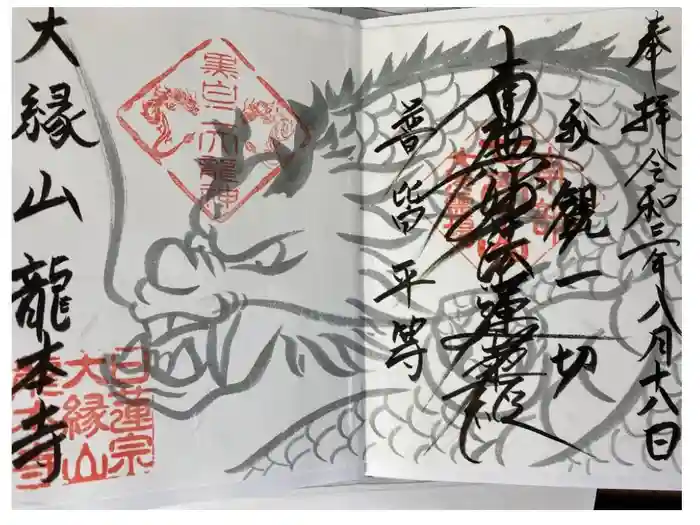 奉拝 令和三年八月十八日
我観一切
南無妙法蓮華経
普皆平等
黒白
龍神
大縁山龍本寺
日蓮宗
大縁山
龍本寺